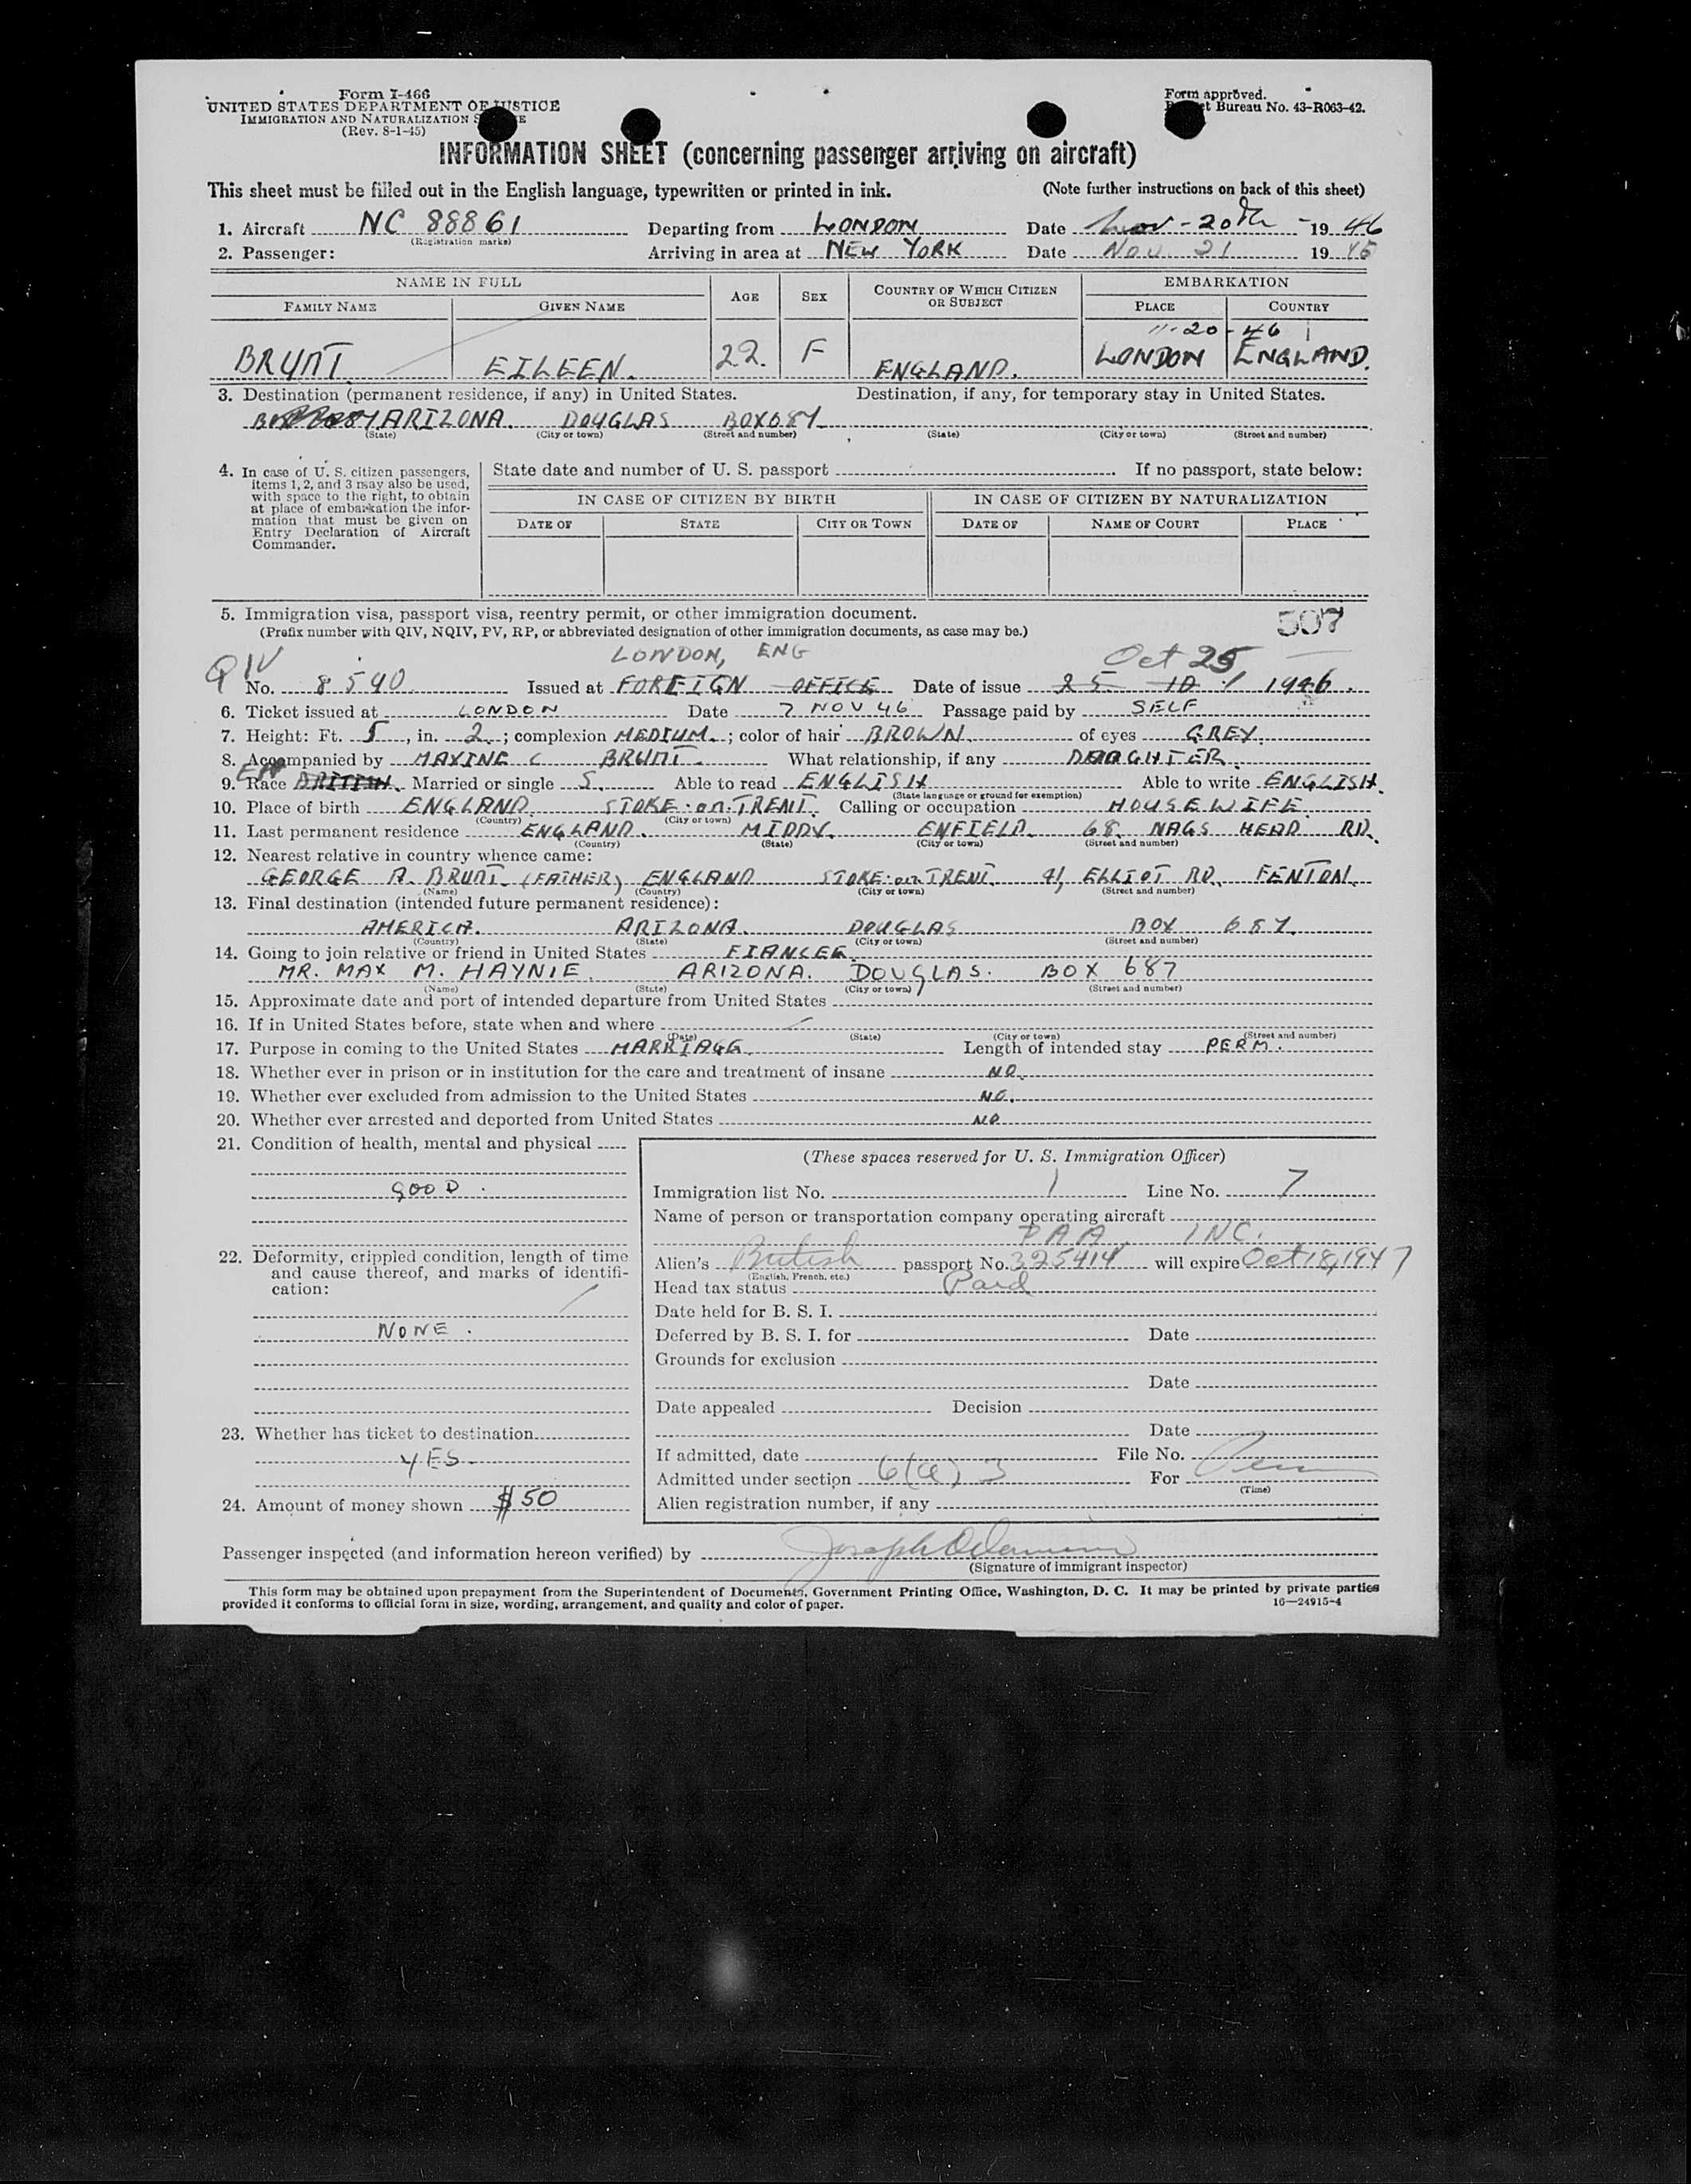 Form I-466
UNITED STATES DEPARTMENT OF JUSTICE
IMMIGRATION AND NATURALIZATION S E
(Rev. 8-1-45)
Form approved.
t Bureau No. 43-R063-42.
INFORMATION SHEET (concerning passenger arriving on aircraft)
This sheet must be filled out in the English language, typewritten or printed in ink. (Note further instructions on back of this sheet)
1. Aircraft NC 88861 Departing from LONDON Date Nov - 20th - 19 46
(Registration marks)
2. Passenger: Arriving in area at NEW YORK Date Nov. 21 19
NAME IN FULL AGE SEX COUNTRY OF WHICH CITIZEN OR SUBJECT EMBARKATION
FAMILY NAME GIVEN NAME PLACE COUNTRY
11-20-46
BRUNT EILEEN. 22. F ENGLAND. LONDON ENGLAND.
3. Destination (permanent residence, if any) in United States. Destination, if any, for temporary stay in United States.
ARIZONA. DOUGLAS BOX 687
(State) (City or town) (Street and number) (State) (City or town) (Street and number)
4. In case of U. S. citizen passengers, items 1, 2, and 3 may also be used, with space to the right, to obtain at place of embarkation the information that must be given on Entry Declaration of Aircraft Commander.
State date and number of U. S. passport . If no passport, state below:
IN CASE OF CITIZEN BY BIRTH IN CASE OF CITIZEN BY NATURALIZATION
DATE OF STATE CITY OR TOWN DATE OF NAME OF COURT PLACE
5. Immigration visa, passport visa, reentry permit, or other immigration document. 507
(Prefix number with QIV, NQIV, PV, RP, or abbreviated designation of other immigration documents, as case may be.)
QIV LONDON, ENG Oct 25,
No. 8590 Issued at FOREIGN OFFICE Date of issue 25 10 1946.
6. Ticket issued at LONDON Date 7 NOV 46 Passage paid by SELF
7. Height: Ft. 5, in. 2.; complexion MEDIUM.; color of hair BROWN. of eyes GREY.
8. Accompanied by MAXINE C BRUNT. What relationship, if any DAUGHTER.
9. Race EN BRITISH. Married or single S. Able to read ENGLISH Able to write ENGLISH.
(State language or ground for exemption)
10. Place of birth ENGLAND. STOKE-on-TRENT. Calling or occupation HOUSEWIFE.
(Country) (City or town)
11. Last permanent residence ENGLAND. MIDDX. ENFIELD. 68. NAGS HEAD RD.
(Country) (State) (City or town) (Street and number)
12. Nearest relative in country whence came:
GEORGE A. BRUNT. (FATHER) ENGLAND STOKE-on-TRENT. 41, ELLIOT RD. FENTON.
(Name) (Country) (City or town) (Street and number)
13. Final destination (intended future permanent residence):
AMERICA. ARIZONA. DOUGLAS BOX 687.
(Country) (State) (City or town) (Street and number)
14. Going to join relative or friend in United States FIANCEE.
MR. MAX M. HAYNIE. ARIZONA. DOUGLAS. BOX 687
(Name) (State) (City or town) (Street and number)
15. Approximate date and port of intended departure from United States
16. If in United States before, state when and where
(Date) (State) (City or town) (Street and number)
17. Purpose in coming to the United States MARRIAGE. Length of intended stay PERM.
18. Whether ever in prison or in institution for the care and treatment of insane NO.
19. Whether ever excluded from admission to the United States NO.
20. Whether ever arrested and deported from United States NO
21. Condition of health, mental and physical
GOOD.
22. Deformity, crippled condition, length of time and cause thereof, and marks of identification:
NONE.
23. Whether has ticket to destination
YES.
24. Amount of money shown $50
(These spaces reserved for U. S. Immigration Officer)
Immigration list No. 1 Line No. 7
Name of person or transportation company operating aircraft
PAA, INC.
Alien's British passport No. 325414 will expire Oct 18, 1947
(English, French, etc.)
Head tax status Paid
Date held for B. S. I.
Deferred by B. S. I. for Date
Grounds for exclusion
Date
Date appealed Decision
Date
If admitted, date File No.
Admitted under section 6(a) 3 For
(Time)
Alien registration number, if any
Passenger inspected (and information hereon verified) by Joseph
(Signature of immigrant inspector)
This form may be obtained upon prepayment from the Superintendent of Documents, Government Printing Office, Washington, D. C. It may be printed by private parties
provided it conforms to official form in size, wording, arrangement, and quality and color of paper. 16—24915-4